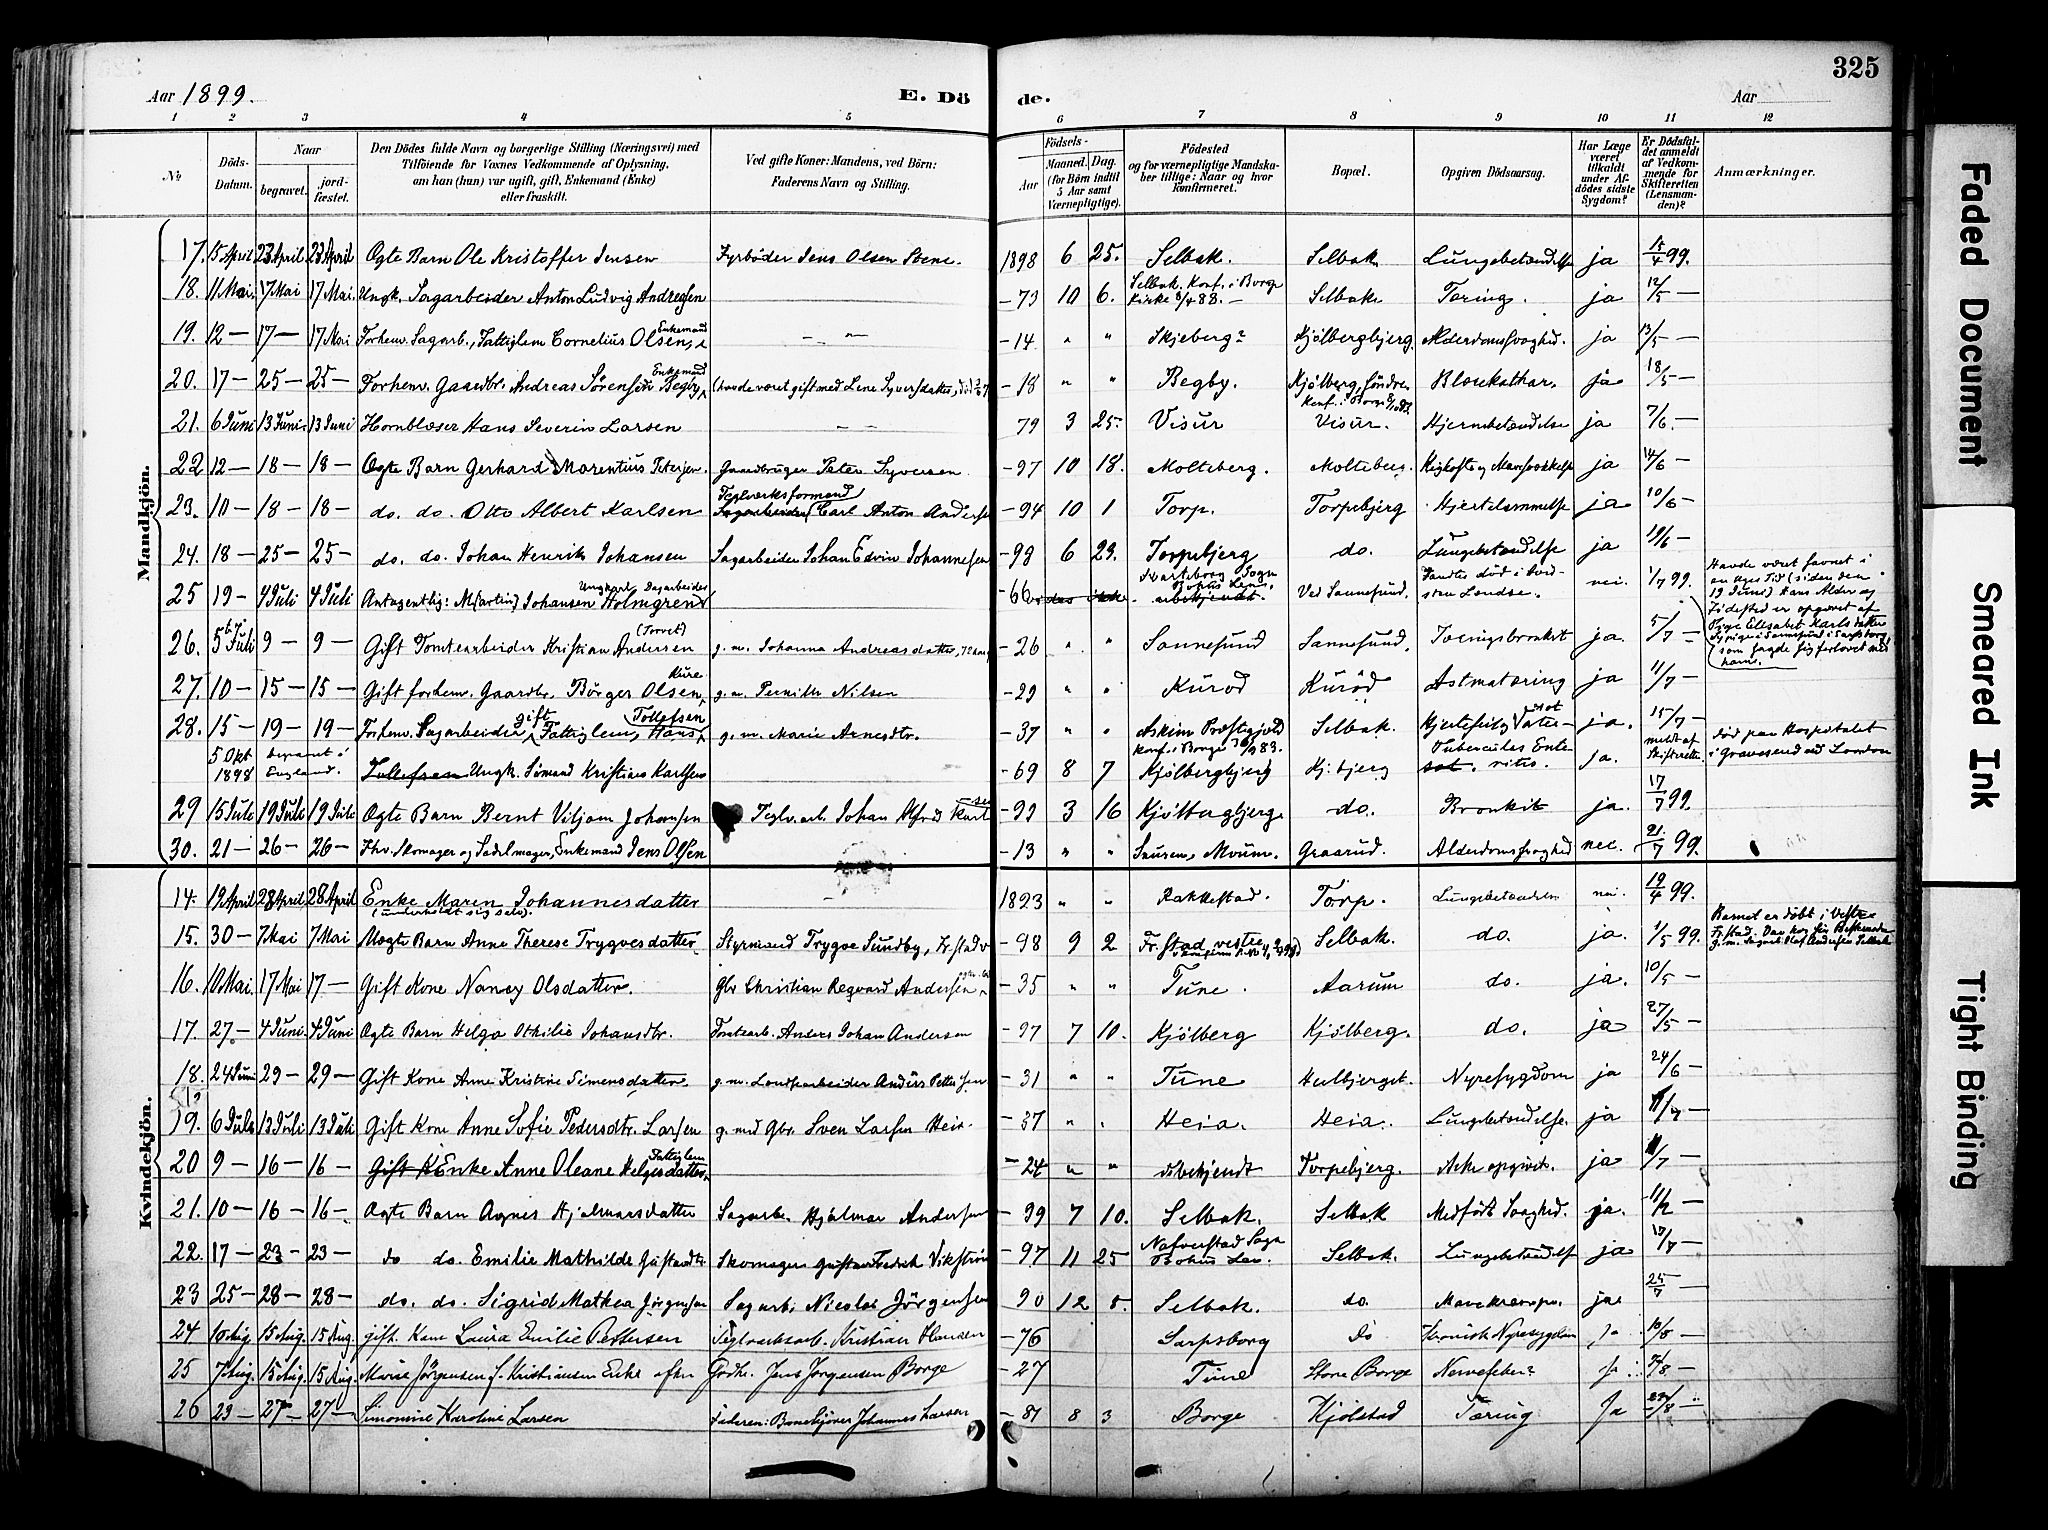 325
Aar 1899. E. Dö de. Aar
1 2 3 4 5 6 7 8 9 10 11 12
No
Döds-Datum.
Naar
begravet. jord-fæstet.
Den Dödes fulde Navn og borgerlige Stilling (Næringsvei) med
Tilföiende for Voxnes Vedkommende af Oplysning,
om han (hun) var ugift, gift, Enkemand (Enke)
eller fraskilt.
Ved gifte Koner: Mandens, ved Börn:
Faderens Navn og Stilling.
Födsels-
Aar Maaned. Dag.
(for Börn indtil
5 Aar samt
Værnepligtige).
Födested
og for værnepligtige Mandska-
ber tillige: Naar og hvor
konfirmeret.
Bopæl.
Opgiven Dödsaarsag.
Har Læge
været
tilkaldt
under Af-
dödes sidste
Sygdom?
Er Dödsfal-
det anmeldt
af Vedkom-
mende for
Skifteretten
(Lensman-
den)?
Anmærkninger.
Mandkjön.
17. 15 April 23 April 23 April Ægte Barn Ole Kristoffer Jensen Fyrböder Jens Olsen Stene. 1898 6 25. Selbak. Selbak Lungebetændelse ja 15/4 99.
18. 11 Mai. 17 Mai 17 Mai. Ungk. Sagarbeider Anton Ludvig Andresen -73 10 6. Selbak. Konf. i Borge Kirke 8/4 88. Selbak Tæring. ja 12/5 —
19. 12 — 17 — 17 Mai Forhenv. Sagarb., Fattiglem Cornelius Olsen, Enkemand — " — -14 " " Skjeberg? Kjølbergbjerg. Alderdomssvaghed. ja 13/5 —
20. 17 — 25 — 25 — Forhenv. Gaardbr. Andreas Sørensen Begby, Enkemand (havde været gift med Lene Syversdatter, -18 " " Begby. Kjølberg, søndre Blærekathar. ja 18/5 —
21. 6 Juni 13 Juni. 13 Juni Hornblæser Hans Severin Larsen — — 79 3 25. Visur Visur. Hjernebetændelse ja 7/6. —
22 12 — 18 — 18 — Ægte Barn Gerhard Marentius Petersen. Gaardbruger Peter Syversen -97 10 18. Molteberg. Molteberg. Kighoste og ja 14/6 —
23. 10 — 18 — 18 — do. do. Otto Albert Karlsen Teglværksformand Sagarbeider Carl Anton Andersen -94 10 1 Torp. Torpebjerg Hjertelammelse ja 10/6 —
24. 18 — 25 — 25 — do. do. Johan Henrik Johansen Sagarbeider Johan Edvin Johannesen -98 6 23. Torpebjerg do. Lungebetændelse ja 19/6 —
25 19 — 4 Juli 4 Juli Antagentlig: M(artin) Johansen Holmgren Ungkarl Dagarbeider -66 Ved Sannesund. nei. 1/7 99.
Havde været savnet i
19 Juni) Hans Alder og
Födested er opgivet af
Pige Elisabet Karlsdatter
som sagde sig forlovet med
ham.
26. 5 Juli 9 — 9 — Gift Tomtearbeider Kristian Andersen (Torvet) g. m. Johanna Andreasdatter, 72 aar -26 " " Sannesund Sannesund. ja. 5/7 —
27. 10 — 15 — 15 — Gift forhenv. Gaardbr. Börger Olsen Kure g. m. Pernille Nilsen -29 " " Kuröd Kuröd Astmatæring ja 11/7 —
28. 15 — 19 — 19 — Forhenv. Sagarbeider, gift Fattiglem, Hans Tollefsen g. m. Marie Arnesdtr. -37 " " Askim Præstegjeld Selbak. Hjertefeil og Vatersot ja. 15/7 —
5 Okt 1898 begravet i England. Tollefsen Ungk. Sömand Kristian Karlsen -69 8 7 Konf. i Borge 30/9 83. Kjølbergbjerg Kj: bjerg Tuberculøs Enteritis. ja. meldt af Skifteretten
död paa Hospitalet
i Gravesend ved London
29 15 Juli 19 Juli 19 Juli Ægte Barn Bernt Viljam Johansen Teglv. arb. Johan Alfred Karlsen -99 3 16 Kjølbergbjerg do. Bronkit ja. 17/7 99.
30. 21 — 26 — 26 — Fhv. Skomager og Sadelmager, Enkemand Jens Olsen -13 " " Graarud. Alderdomssvaghed nei. 21/7 99.
Kvindekjön.
14. 19 April 28 April 28 April Enke Maren Johannesdatter (underholdt sig selv). — 1823 " " Rakkestad. Torp. Lungebetændelse nei. 19/4 99.
15. 30 — 7 Mai 7 Mai Uægte Barn Anne Therese Trygvesdatter Styrmand Trygve Sundby, Fr.stad -98 9 2 Fr.stad vestre Selbak. do. ja. 1/5 99.
Barnet er döbt i Vestre
Fr.stad.
16. 10 Mai. 17 Mai 17 — Gift Kone Nancy Olsdatter. Gbr Christian Regvard Andersen -35 " " Tune. Aarum do. ja. 10/5 —
17. 27. — 4 Juni 4 Juni Ægte Barn Helga Othilie Johansdtr. Tomtearb. Anders Johan Andersen -97 7 10. Kjölberg Kjölberg. do. ja 27/5 —
18. 24 Juni 29 — 29 — Gift Kone Anne Kristine Simensdatter. g. m. Landsarbeider Anders Pettersen -31 " " Tune Hulbjerget. Nyresygdom ja 24/6 —
19. 6 Juli 13 Juli 13 Juli Gift Kone Anne Sofie Pedersdtr. Larsen g. med Gbr. Sven Larsen Heia. -37 " " Heia. Heia. Lungebetændelse. ja 11/7 —
20 9 — 16 — 16 — Gift K Enke Anne Oleane Helgesdatter, Fattiglem -24 " " Ubekjendt Torpebjerg. Ikke opgivet. ja 11/7 —
21. 10 — 16 — 16 — Ægte Barn Agnes Hjalmarsdatter Sagarb. Hjalmar Andersen -99 7 10. Selbak. Selbak Medfödt Svaghed. ja. 11/2 —
22. 17 — 23 — 23 — do do. Emilie Mathilde Gustavdtr. Skomager Gustav Fredrik Vikström -97 11 25 Nafverstad Sogn Bohus Len. Selbak. Lungebetændelse ja 17/7 —
23 25 — 28 — 28 — do. do. Sigrid Mathea Jörgensen Sagarb. Nicolai Jörgensen 90 12 5. Selbak. do. Mavekrampe. ja 25/7 —
24 10 Aug. 15 Aug. 15 Aug. gift. Kone Laura Emilie Pettersen Teglverksarb. Kristian Hansen -76 Sarpsborg do Kronisk Nyresygdom Ja 10/8 —
25 7 Aug. 15 Aug. 15 Aug. Marie Jörgensen f. Kristiansen Enke efter Gdbr. Jens Jorgensen Borge -27 Tune Store Borge Nervefeber? Ja /8 —
26 23 — 27 — 27 — Simonine Karoline Larsen Faderen: Banebetjent Johannes Larsen -81 8 3 Borge Kjölstad Tæring Ja 23/8 —
Faded Document
Smeared Ink
Tight Binding